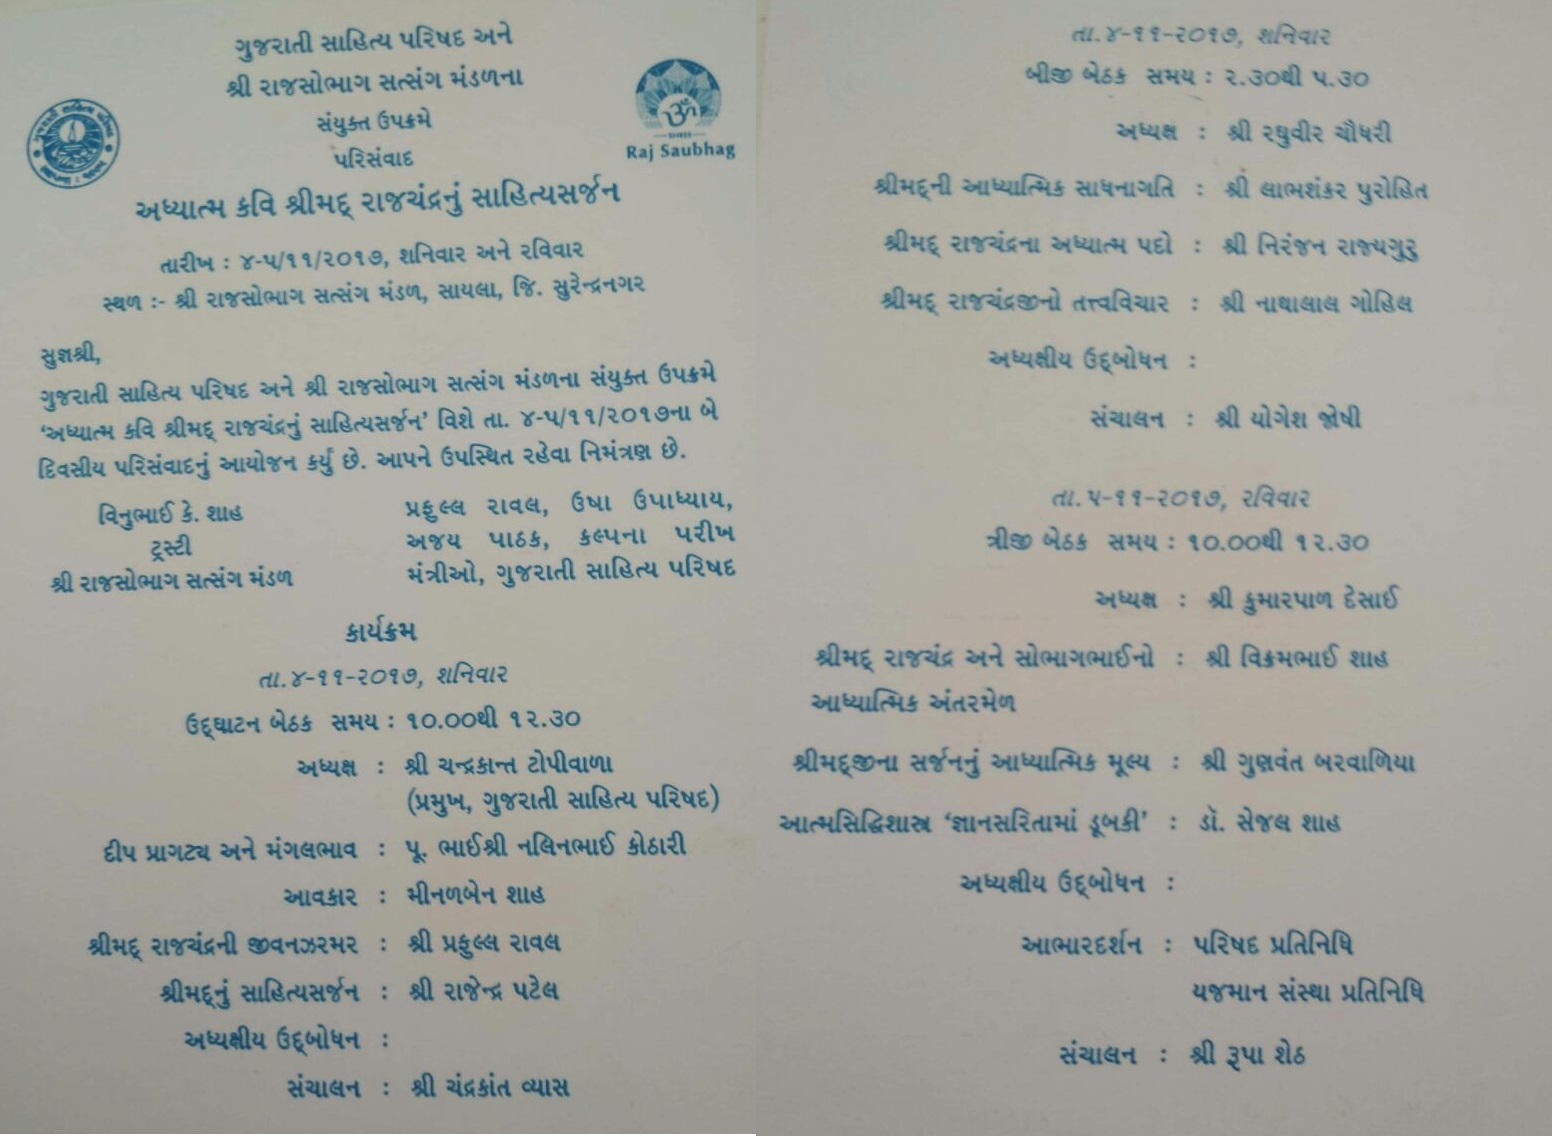 ગુજરાતી સાહિત્ય પરિષદ અને
શ્રી રાજસોભાગ સત્સંગ મંડળના
સંયુક્ત ઉપક્રમે
પરિસંવાદ
Raj Saubhag
અધ્યાત્મ કવિ શ્રીમદ્ રાજચંદ્રનું સાહિત્યસર્જન
તારીખ : ૪-૫/૧૧/૨૦૧૭, શનિવાર અને રવિવાર
સ્થળ :- શ્રી રાજસોભાગ સત્સંગ મંડળ, સાયલા, જિ. સુરેન્દ્રનગર
સુજ્ઞશ્રી,
ગુજરાતી સાહિત્ય પરિષદ અને શ્રી રાજસોભાગ સત્સંગ મંડળના સંયુક્ત ઉપક્રમે
‘અધ્યાત્મ કવિ શ્રીમદ્ રાજચંદ્રનું સાહિત્યસર્જન’ વિશે તા. ૪-૫/૧૧/૨૦૧૭ના બે
દિવસીય પરિસંવાદનું આયોજન કર્યું છે. આપને ઉપસ્થિત રહેવા નિમંત્રણ છે.
વિનુભાઈ કે. શાહ
ટ્રસ્ટી
શ્રી રાજસોભાગ સત્સંગ મંડળ
પ્રફુલ્લ રાવલ, ઉષા ઉપાધ્યાય,
અજય પાઠક, કલ્પના પરીખ
મંત્રીઓ, ગુજરાતી સાહિત્ય પરિષદ
કાર્યક્રમ
તા.૪-૧૧-૨૦૧૭, શનિવાર
ઉદ્ઘાટન બેઠક સમય : ૧૦.૦૦થી ૧૨.૩૦
અધ્યક્ષ : શ્રી ચન્દ્રકાન્ત ટોપીવાળા
(પ્રમુખ, ગુજરાતી સાહિત્ય પરિષદ)
દીપ પ્રાગટ્ય અને મંગલભાવ : પૂ. ભાઈશ્રી નલિનભાઈ કોઠારી
આવકાર : મીનળબેન શાહ
શ્રીમદ્ રાજચંદ્રની જીવનઝરમર : શ્રી પ્રફુલ્લ રાવલ
શ્રીમદ્નું સાહિત્યસર્જન : શ્રી રાજેન્દ્ર પટેલ
અધ્યક્ષીય ઉદ્બોધન :
સંચાલન : શ્રી ચંદ્રકાંત વ્યાસ
તા.૪-૧૧-૨૦૧૭, શનિવાર
બીજી બેઠક સમય : ૨.૩૦થી ૫.૩૦
અધ્યક્ષ : શ્રી રઘુવીર ચૌધરી
શ્રીમદ્ની આધ્યાત્મિક સાધનાગતિ : શ્રી લાભશંકર પુરોહિત
શ્રીમદ્ રાજચંદ્રના અધ્યાત્મ પદો : શ્રી નિરંજન રાજ્યગુરુ
શ્રીમદ્ રાજચંદ્રજીનો તત્ત્વવિચાર : શ્રી નાથાલાલ ગોહિલ
અધ્યક્ષીય ઉદ્બોધન :
સંચાલન : શ્રી યોગેશ જોષી
તા.૫-૧૧-૨૦૧૭, રવિવાર
ત્રીજી બેઠક સમય : ૧૦.૦૦થી ૧૨.૩૦
અધ્યક્ષ : શ્રી કુમારપાળ દેસાઈ
શ્રીમદ્ રાજચંદ્ર અને સોભાગભાઈનો : શ્રી વિક્રમભાઈ શાહ
આધ્યાત્મિક અંતરમેળ
શ્રીમદ્જીના સર્જનનું આધ્યાત્મિક મૂલ્ય : શ્રી ગુણવંત બરવાળિયા
આત્મસિદ્ધિશાસ્ત્ર ‘જ્ઞાનસરિતામાં ડૂબકી’ : ડૉ. સેજલ શાહ
અધ્યક્ષીય ઉદ્બોધન :
આભારદર્શન : પરિષદ પ્રતિનિધિ
યજમાન સંસ્થા પ્રતિનિધિ
સંચાલન : શ્રી રૂપા શેઠ